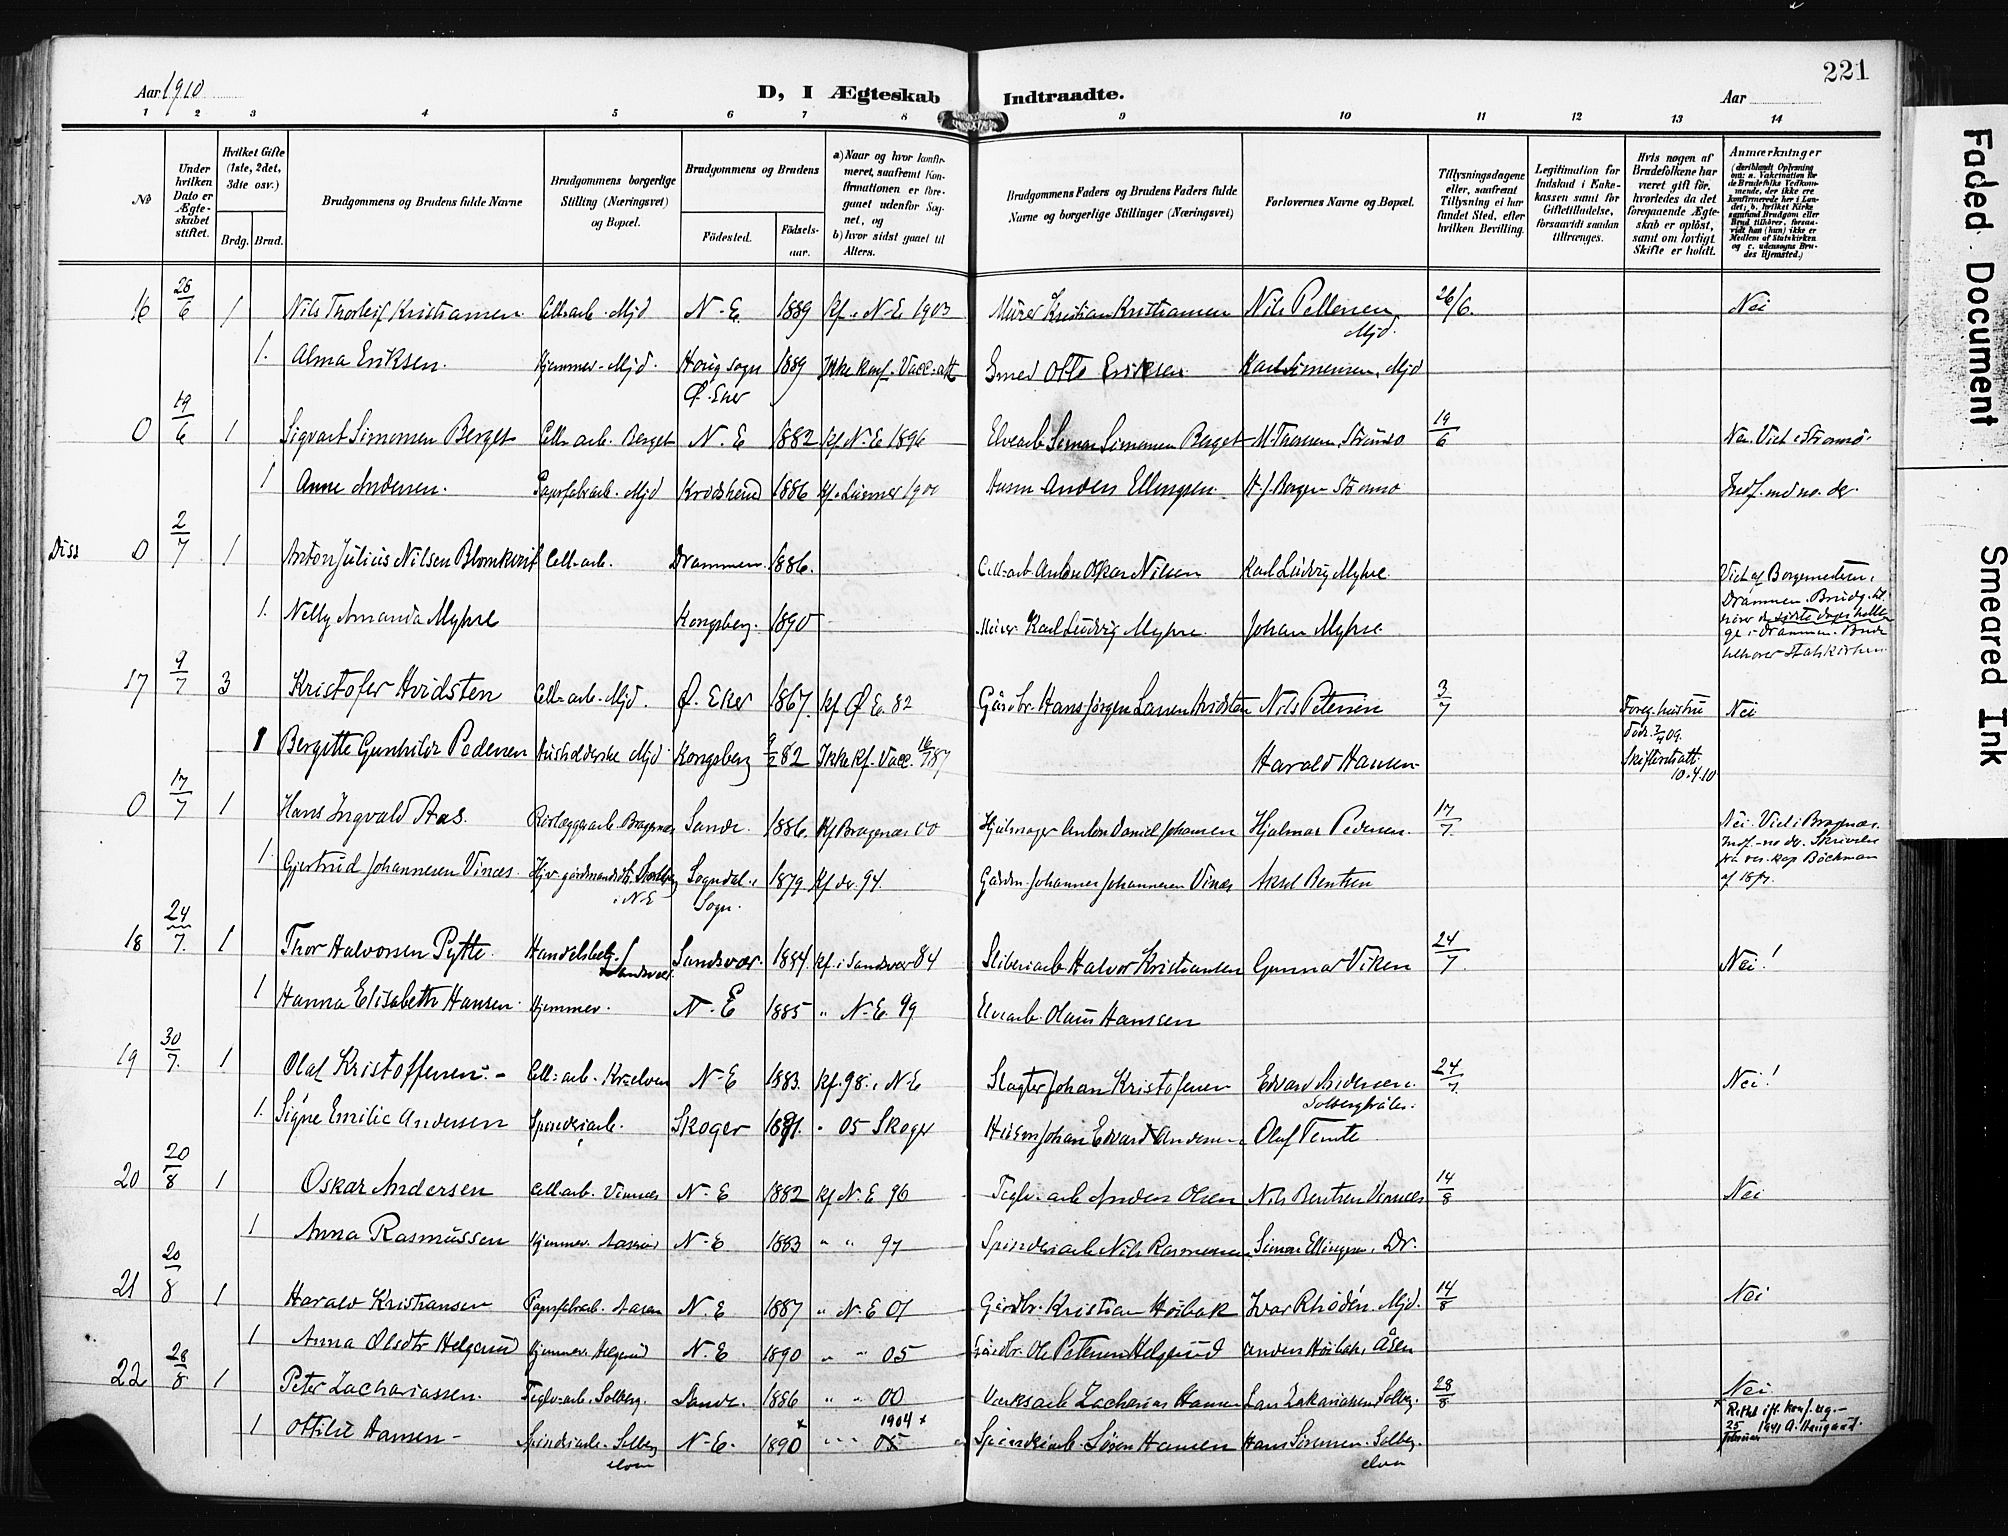 221
Aar 1910
D, I Ægteskab Indtraadte.
Aar
1 2 3 4 5 6 7 8 9 10 11 12 13 14
No
Under hvilken Dato er Ægteskabet stiftet.
Hvilket Gifte (1ste, 2det, 3dte osv.)
Brdg. Brud.
Brudgommens og Brudens fulde Navne
Brudgommens borgerlige Stilling (Næringsvei) og Bopæl.
Brudgommens og Brudens
Fødested.
Fødselsaar.
a) Naar og hvor konfirmeret, saafremt Konfirmationen er foregaaet udenfor Sognet, og
b) hvor sidst gaaet til Alters.
Brudgommens Faders og Brudens Faders fulde Navne og borgerlige Stillinger (Næringsvei)
Forlovernes Navne og Bopæl.
Tillysningsdagene eller, saafremt Tillysning ei har fundet Sted, efter hvilken Bevilling.
Legitimation for Indskud i Enkekassen samt for Giftetilladelse, forsaavidt saadan tiltrænges.
Hvis nogen af Brudefolkene har været gift før, hvorledes da det foregaaende Ægteskab er opløst, samt om lovligt Skifte er holdt.
Anmærkninger
(deriblandt Oplysning om: a. Vakcination for de Brudefolks Vedkommende, der ikke ere konfirmerede her i Landet; b. hvilket Kirkesamfund Brudgom eller Brud tilhører, forsaavidt han (hun) ikke er Medlem af Statskirken og c. udensogns Brudes Hjemsted.)
16 26/6 1 Nils Thorleif Kristiansen Cell=arb. Mjd N-E. 1889 kf. i N-E 1903 Murer Kristian Kristiansen Nils Pettersen Mjd. 26/6. Nei
1. Alma Eriksen. Hjemmev. Mjd. Houg sogn Ø. Eker 1889 Ikke konf. Vacc. att Smed Otto Eriksen Karl Simensen, Mjd
0 19/6 1 Sigvart Simonsen Berget Cell=arb. Berget N. E 1882 kf N-E 1896 Elvearb Simon Simonsen Berget M. Thorsen, Strømsø 19/6 Nei. Viet i Strømsø.
1 Anne Andersen. Papirfabarb. Mjd Krødsherad 1886 1900 Husm Anders Ellingsen. H. J. Borgen Strømsø
Diss 0 2/7 1 Anton Julius Nilsen Blomkvist Cell=arb. Drammen 1886. Cell=arb Anton Oskar Nilsen Karl Ludvig Myhre. Viet af Borgemesteren i Drammen. Brudg. tilhører de sidste dages hellige i Drammen. Brud tilhører Statskirken.
1. Nelly Amanda Myhre Kongsberg. 1890 Murer Karl Ludvig Myhre. Johan Myhre
17 9/7 3 Kristofer Hvidsten Cell=arb. Mjd. Ø. Eker 1867. kf Ø E. 82 Gårdbr. Hans Jørgen Larsen Hvidsten Nils Petersen 3/7 Foreg. hustru død 09. Skifteratt. 10.4.10 Nei
1 Bergitte Gunhilda Pedersen Husholderske Mjd Kongsberg 82 Ikke kf. Vacc. 87 Harald Hansen
0 17/7 1 Hans Ingvald Aas. Rørlæggerarb. Bragernæs Sande. 1886. kf Bragernæs 00 Hjulmager Anton Daniel Johansen Hjalmar Pedersen. 17/7. Nei. Viet i Bragernæs.
1. Gjertrud Johannesen Vinæs. i N-E Sogndal i Sogn. 1879 kf do. 94. Gårdm Johannes Johannesen Vinæs Aksel Bentsen
18 24/7. 1 Thor Halvorsen Pytte. Sandsvær Sandsvær. 1884 kf. i Sandsvær 84 Sliberiarb Halvor Kristiansen Gunnar Viken 24/7. Nei!
1 Hanna Elisabeth Hansen. Hjemmev. N-E 1885 " N-E. 99 Elvearb. Olaus Hansen
19 30/7. 1 Olaf Kristoffersen.- Cell=arb. Krælven N-E 1883. kf. 98. i N-E Slagter Johan Kristofersen Edvard Andersen Solbergbråten. 24/7. Nei!
1. Signe Emilie Andersen Spinderiarb. Skoger " 05 Skoger Husm Johan Edvard Andersen Olaf Temte
20 20/8 1 Oskar Andersen Cell=arb. Vinnæs N-E 1882 kf N-E 96 Teglv.arb Anders Olsen Nils Bentsen Vinnæs 14/8 Nei
1 Anna Rasmussen Hjemmev. N-E 1883 " " 97 Spinderiarb Nils Rasmussen Simon Ellingsen, Dr.
21 20/8 1 Harald Kristiansen Papirfabarb. Aasen N-E 1887 " N-E 01 Gårdbr. Kristian Høibak Ivar Rhodén. Mjd. 14/8 Nei
1 Anna Olsdtr Helgerud Hjemmev. Helgerud N-E 1890 " " 05 Gårdbr. Ole Petersen Helgerud Anders Høibak, Åsen
22 28/8 1 Peter Zachariassen. Teglv=arb. Solberg. Sande. 1886 " " 00 Verksarb Zacharias Hansen Lars Zakariassen, Solbg. 28/8 Nei
1 Ottilie Hansen- Spinderiarb. Solberg elven N-E. 1890 x " " 05 1904 x Spinderiarb. Søren Hansen Hans Sørensen. Solberg elven x Rettet ift. konf. reg.- 25 februar 1941
Faded Document
Smeared Ink